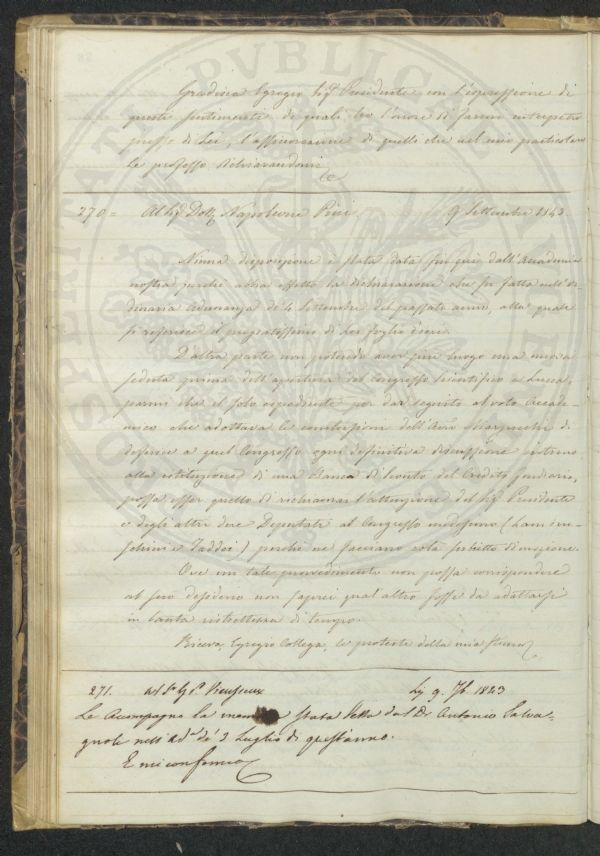 Gradisca Egregio Sig.r Presidente con l'espressione di
questi sentimenti, di quali ho l'onore di farmi interpetre
presso di Lei, l'assicurazione di quelli che nel mio particolare
Le professo dichiarandomi
&c
270 = Al Sig. Dott. Napoleone Pini 9 Settembre 1843
Niuna disposizione è stata data fin qui dall'Accademia
nostra perchè abbia effetto la dichiarazione che fu fatta nell'Or-
dinaria Adunanza de' 4 Settembre del passato anno, alla quale
si referisce il pregiatissimo di Lei foglio d'ieri.
D'altra parte non potendo aver più luogo una nuova
seduta prima dell'apertura del Congresso Scientifico a Lucca,
parmi che il solo espediente per dar seguito al voto Accade-
mico che adottava le conclusioni dell'Avv. di
deferire a quel Congresso ogni definitiva discussione intorno
alla istituzione di una Banca di Sconto del Credito fondiario,
possa esser quello di richiamar l'attenzione del Sig. Presidente
e degli altri due Deputati al Congresso medesimo (Lambru-
schini e Taddei) perchè ne facciano colà subietto di mozione.
Ove un tale provvedimento non possa corrispondere
al suo desiderio non saprei qual altro fosse da adattarsi
in tanta ristrettezza di tempo.
Riceva, Egregio Collega, le proteste della mia stima
271. al S. G. P. Vieusseux Li 9. 7b 1843
Le Accompagno la memoria stata letta dal D. Antonio Salva-
gnoli nell'ad.a de' 2 Luglio di quest'anno.
E mi confermo